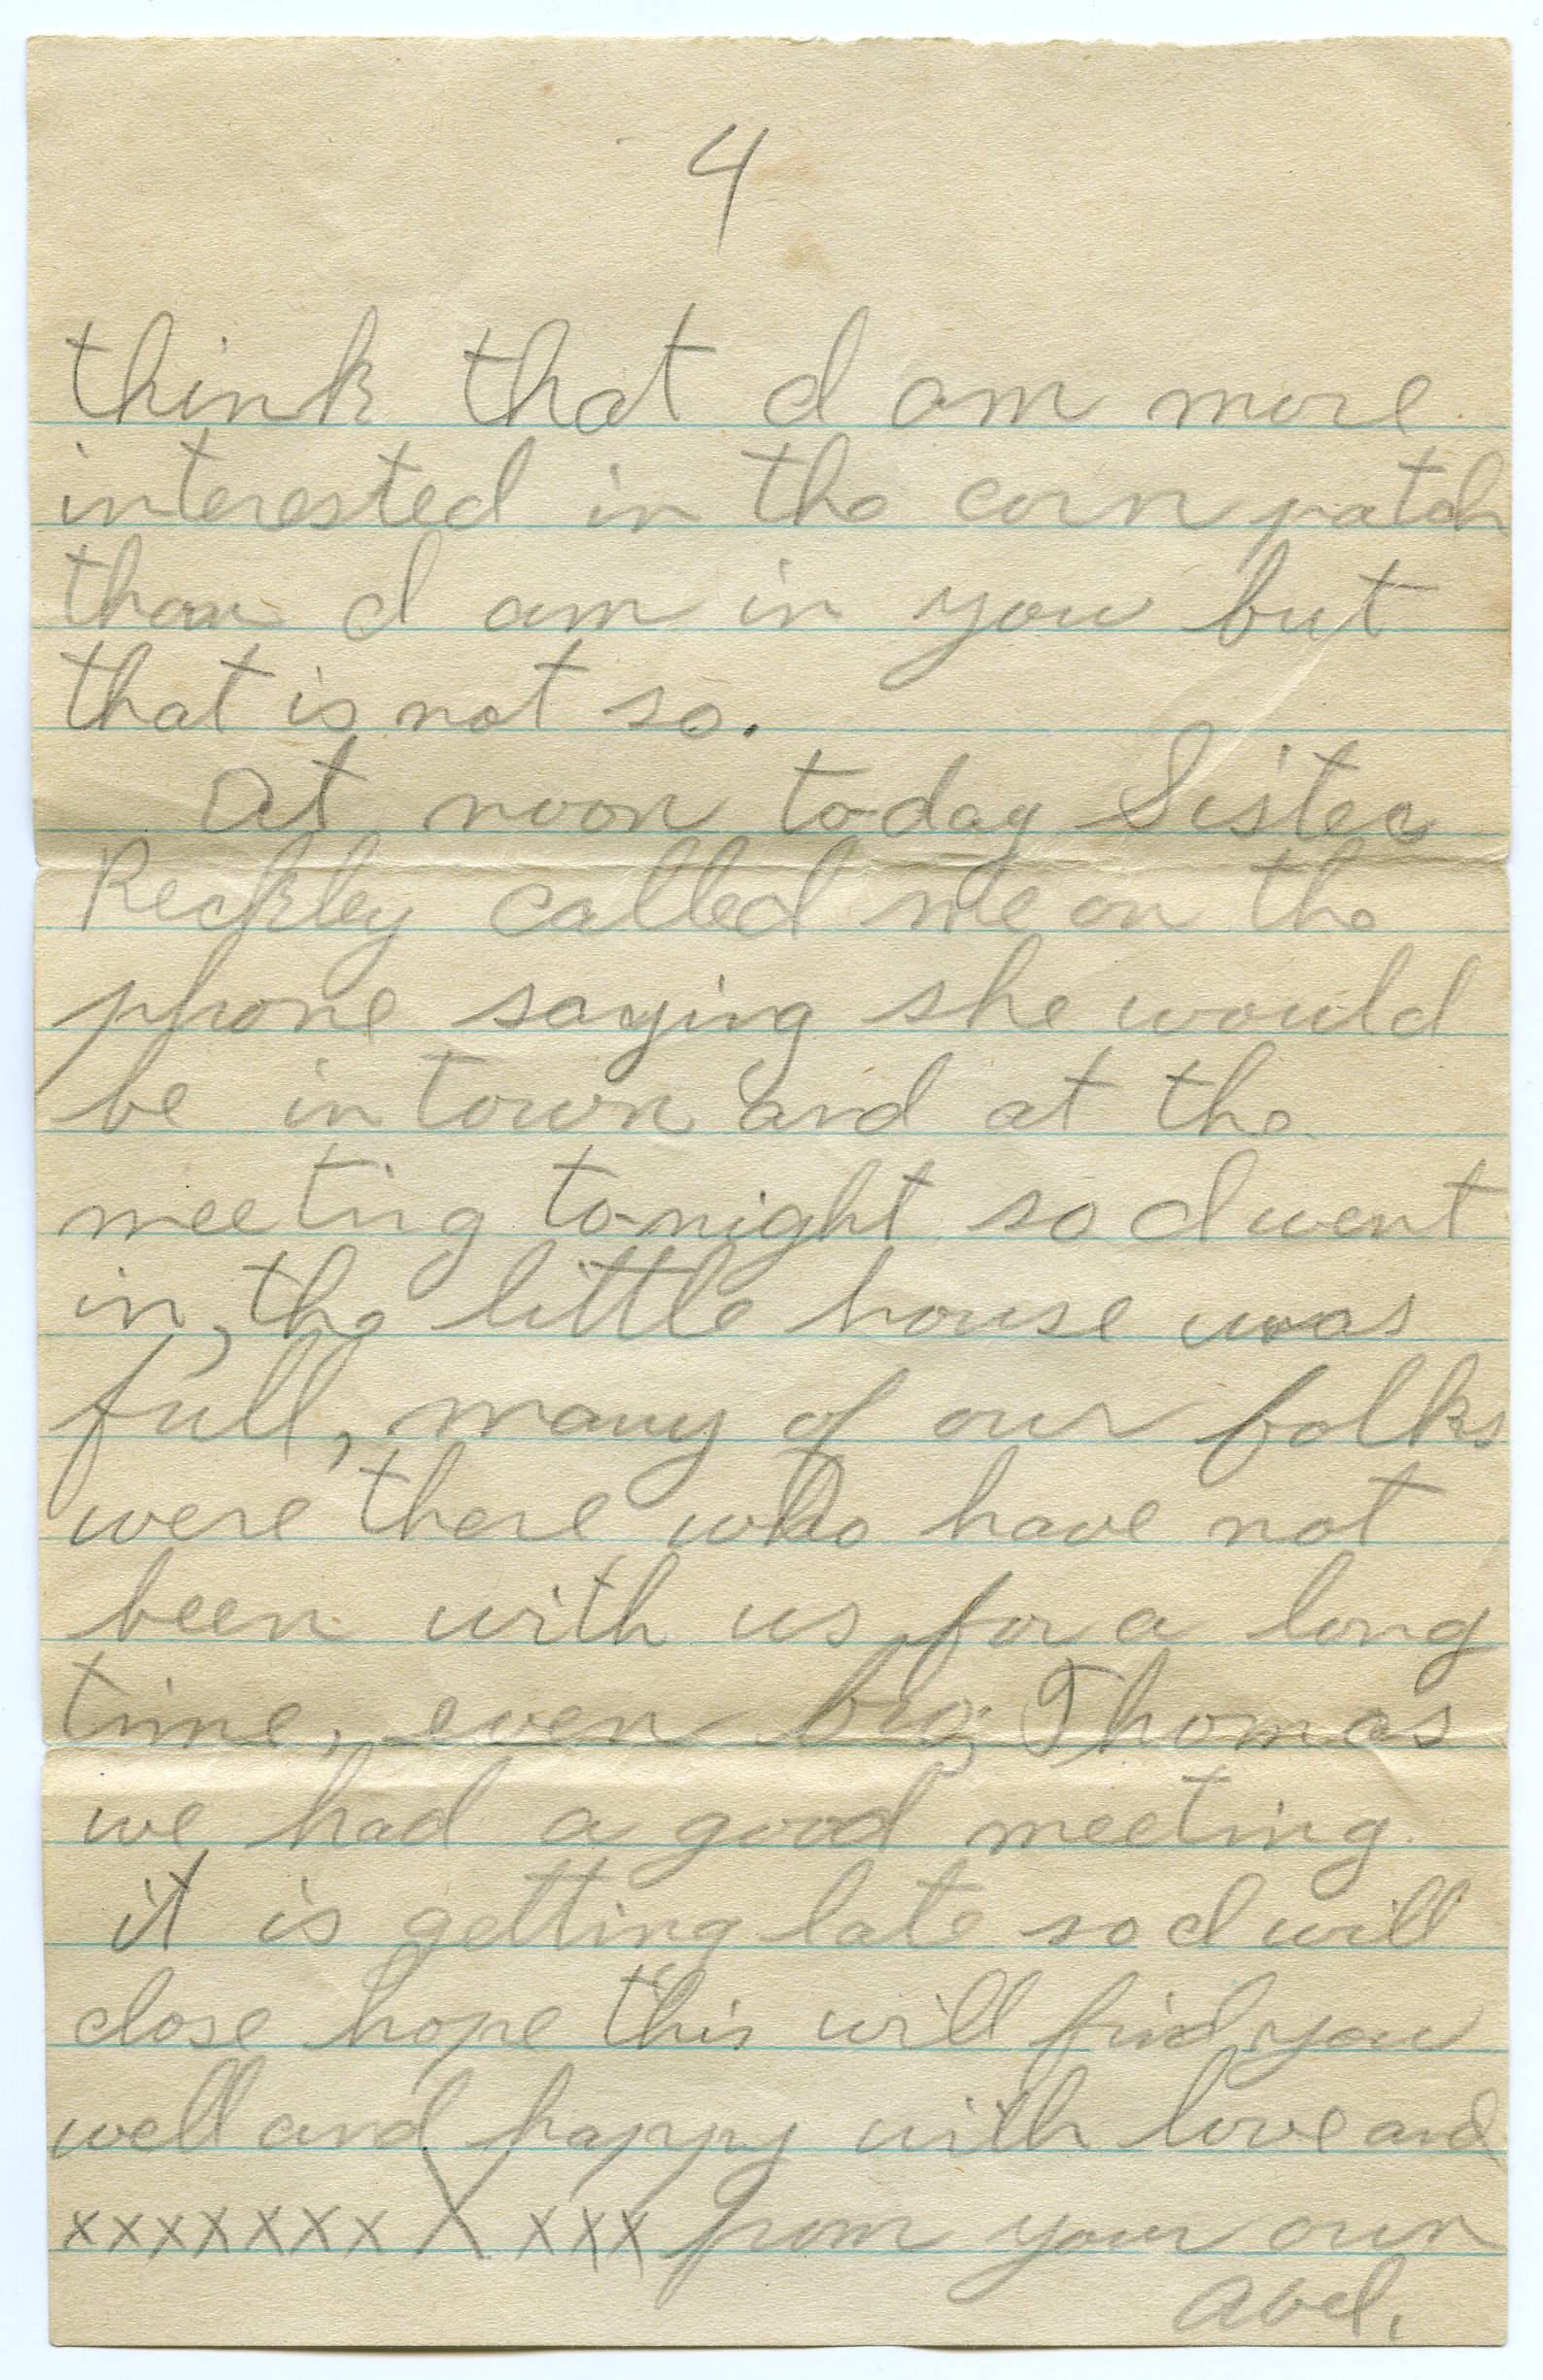 4
think that I am more
interested in the corn patch
than I am in you but
that is not so.
At noon to-day Sister
Reckley called me on the
phone saying she would
be in town and at the
meeting to-night so I went
in, the little house was
full, many of our folks
were there who have not
been with us for a long
time, even bro; Thomas
we had a good meeting.
it is getting late so I will
close hope this will find you
well and happy with love and
xxxxxxxx X xxx from your own
Abel.